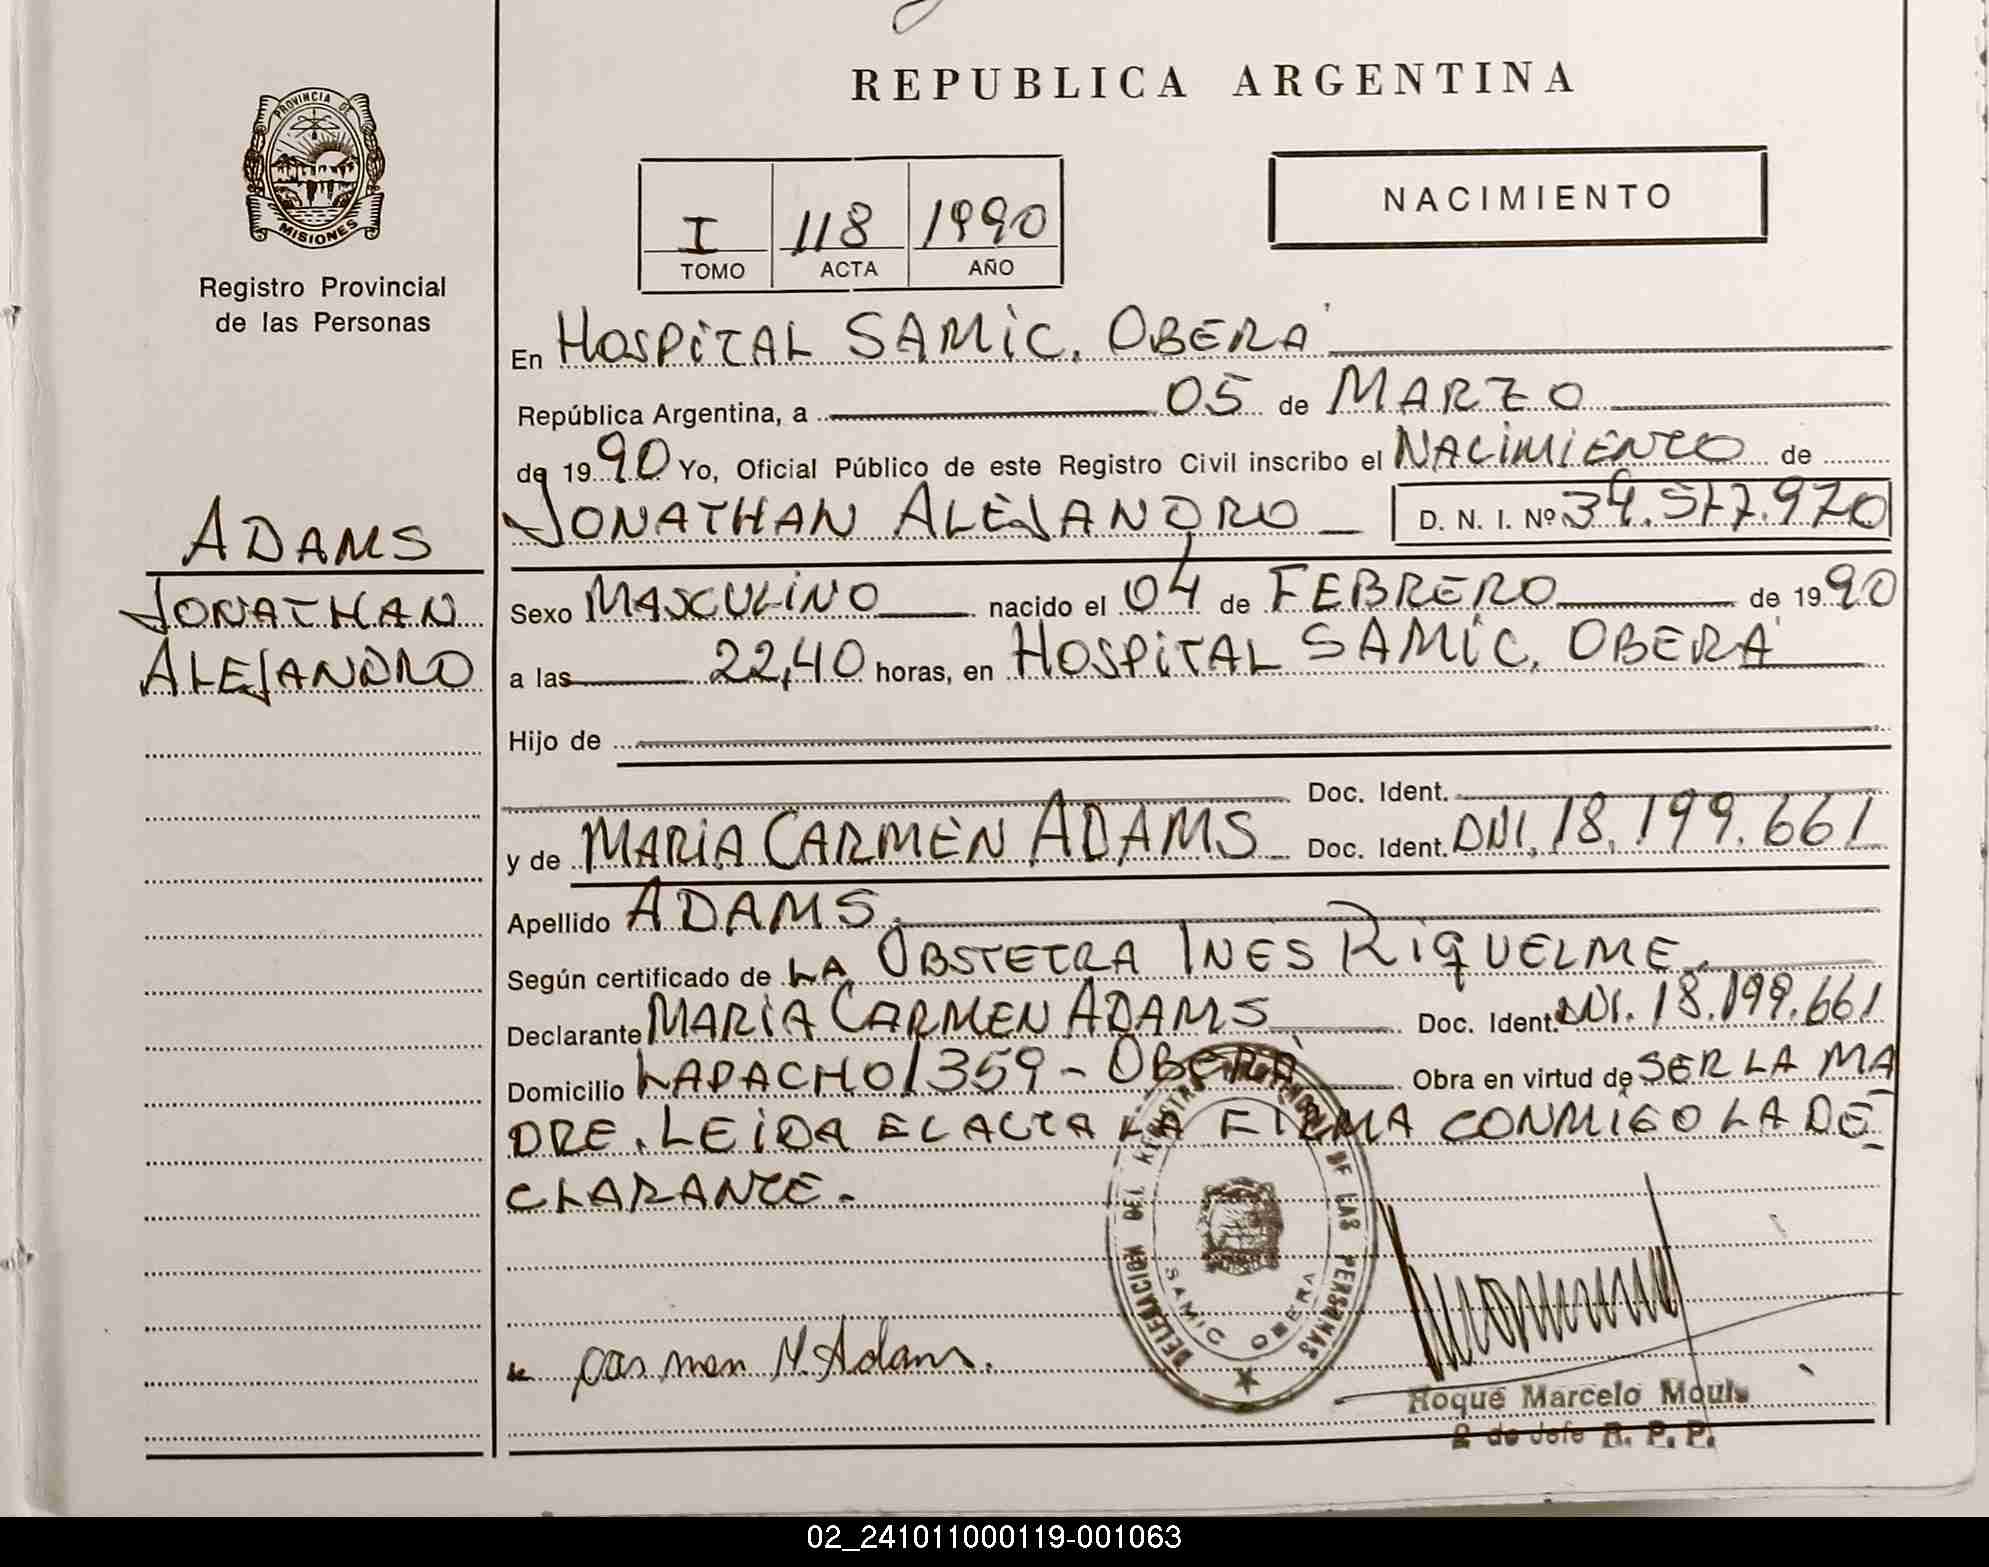 REPUBLICA ARGENTINA
PROVINCIA DE
MISIONES
Registro Provincial
de las Personas
NACIMIENTO
I 118 1990
TOMO ACTA AÑO
En HOSPITAL SAMIC. OBERÁ
República Argentina, a 05 de MARZO
de 1990 Yo, Oficial Público de este Registro Civil inscribo el NACIMIENTO de
JONATHAN ALEJANDRO D. N. I. Nº 34.577.970
ADAMS
JONATHAN
ALEJANDRO
Sexo MASCULINO nacido el 04 de FEBRERO de 1990
a las 22,40 horas, en HOSPITAL SAMIC. OBERÁ
Hijo de
Doc. Ident.
y de MARIA CARMEN ADAMS Doc. Ident. DNI. 18.199.661
Apellido ADAMS.
Según certificado de LA OBSTETRA INES RIQUELME.
Declarante MARIA CARMEN ADAMS Doc. Ident. DNI. 18.199.661
Domicilio LAPACHO 1359 - OBERÁ Obra en virtud de SER LA MA
DRE. LEIDA EL ACTA LA FIRMA CONMIGO LA DE
CLARANTE.-
DELEGACION DEL REGISTRO PROVINCIAL DE LAS PERSONAS
SAMIC OBERA
Carmen M. Adams.
Roque Marcelo
2 do Jefe R. P. P.
02_241011000119-001063